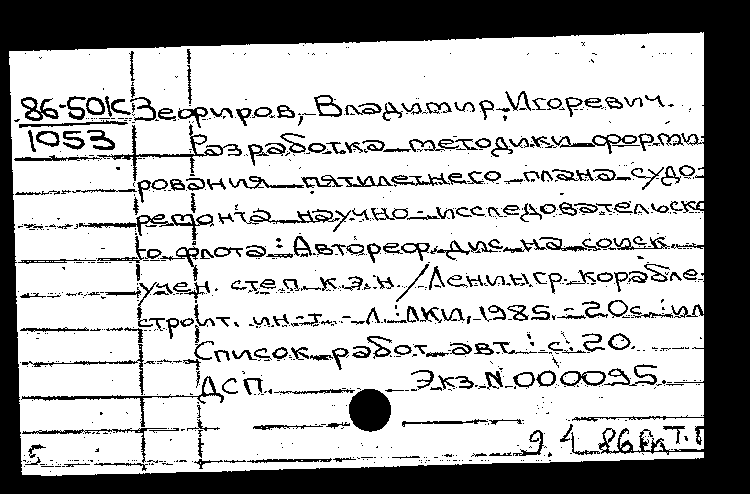 86-50К Зефиров, Владимир Игоревич.
1053 Разработка методики форми-
рования пятилетнего плана судо-
ремонта научно-исследовательско
го флота : Автореф. дис. на соиск.
учен. степ. к.э.н. / Ленингр. корабле-
строит. ин-т. - Л. : ЛКИ, 1985. - 20с. : ил
Список работ авт. : с. 20.
ДСП. Экз. N 000095.
5 9. 4 86